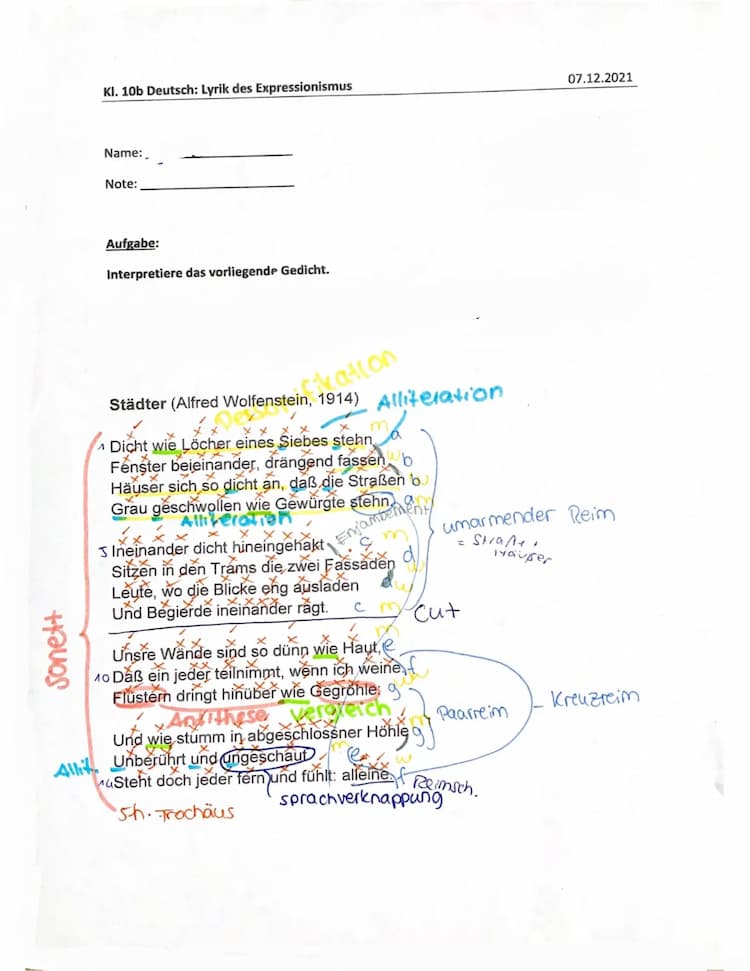 Kl. 10b Deutsch: Lyrik des Expressionismus
07.12.2021
Name:
Note:
Aufgabe:
Interpretiere das vorliegende Gedicht.
Personifikation
Städter (Alfred Wolfenstein, 1914)
Alliteration
1 Dicht wie Löcher eines Siebes stehn m a
Fenster beieinander, drängend fassen w b
Häuser sich so dicht an, daß die Straßen b w
Grau geschwollen wie Gewürgte stehn. a m
Alliteration
Enjambement
umarmender Reim
= Straße,
Häuser
5 Ineinander dicht hineingehakt c m
Sitzen in den Trams die zwei Fassaden d w
Leute, wo die Blicke eng ausladen d w
Und Begierde ineinander ragt. c m
Cut
Sonett
m
Unsre Wände sind so dünn wie Haut, e
10 Daß ein jeder teilnimmt, wenn ich weine, f w
Flüstern dringt hinüber wie Gegröhle: g w
Antithese
Vergleich
Paarreim
Kreuzreim
Und wie stumm in abgeschlossner Höhle g w
Allit.
Unberührt und ungeschaut m e w
14 Steht doch jeder fern und fühlt: alleine. f Reimsch.
sprachverknappung
5h. Trochäus